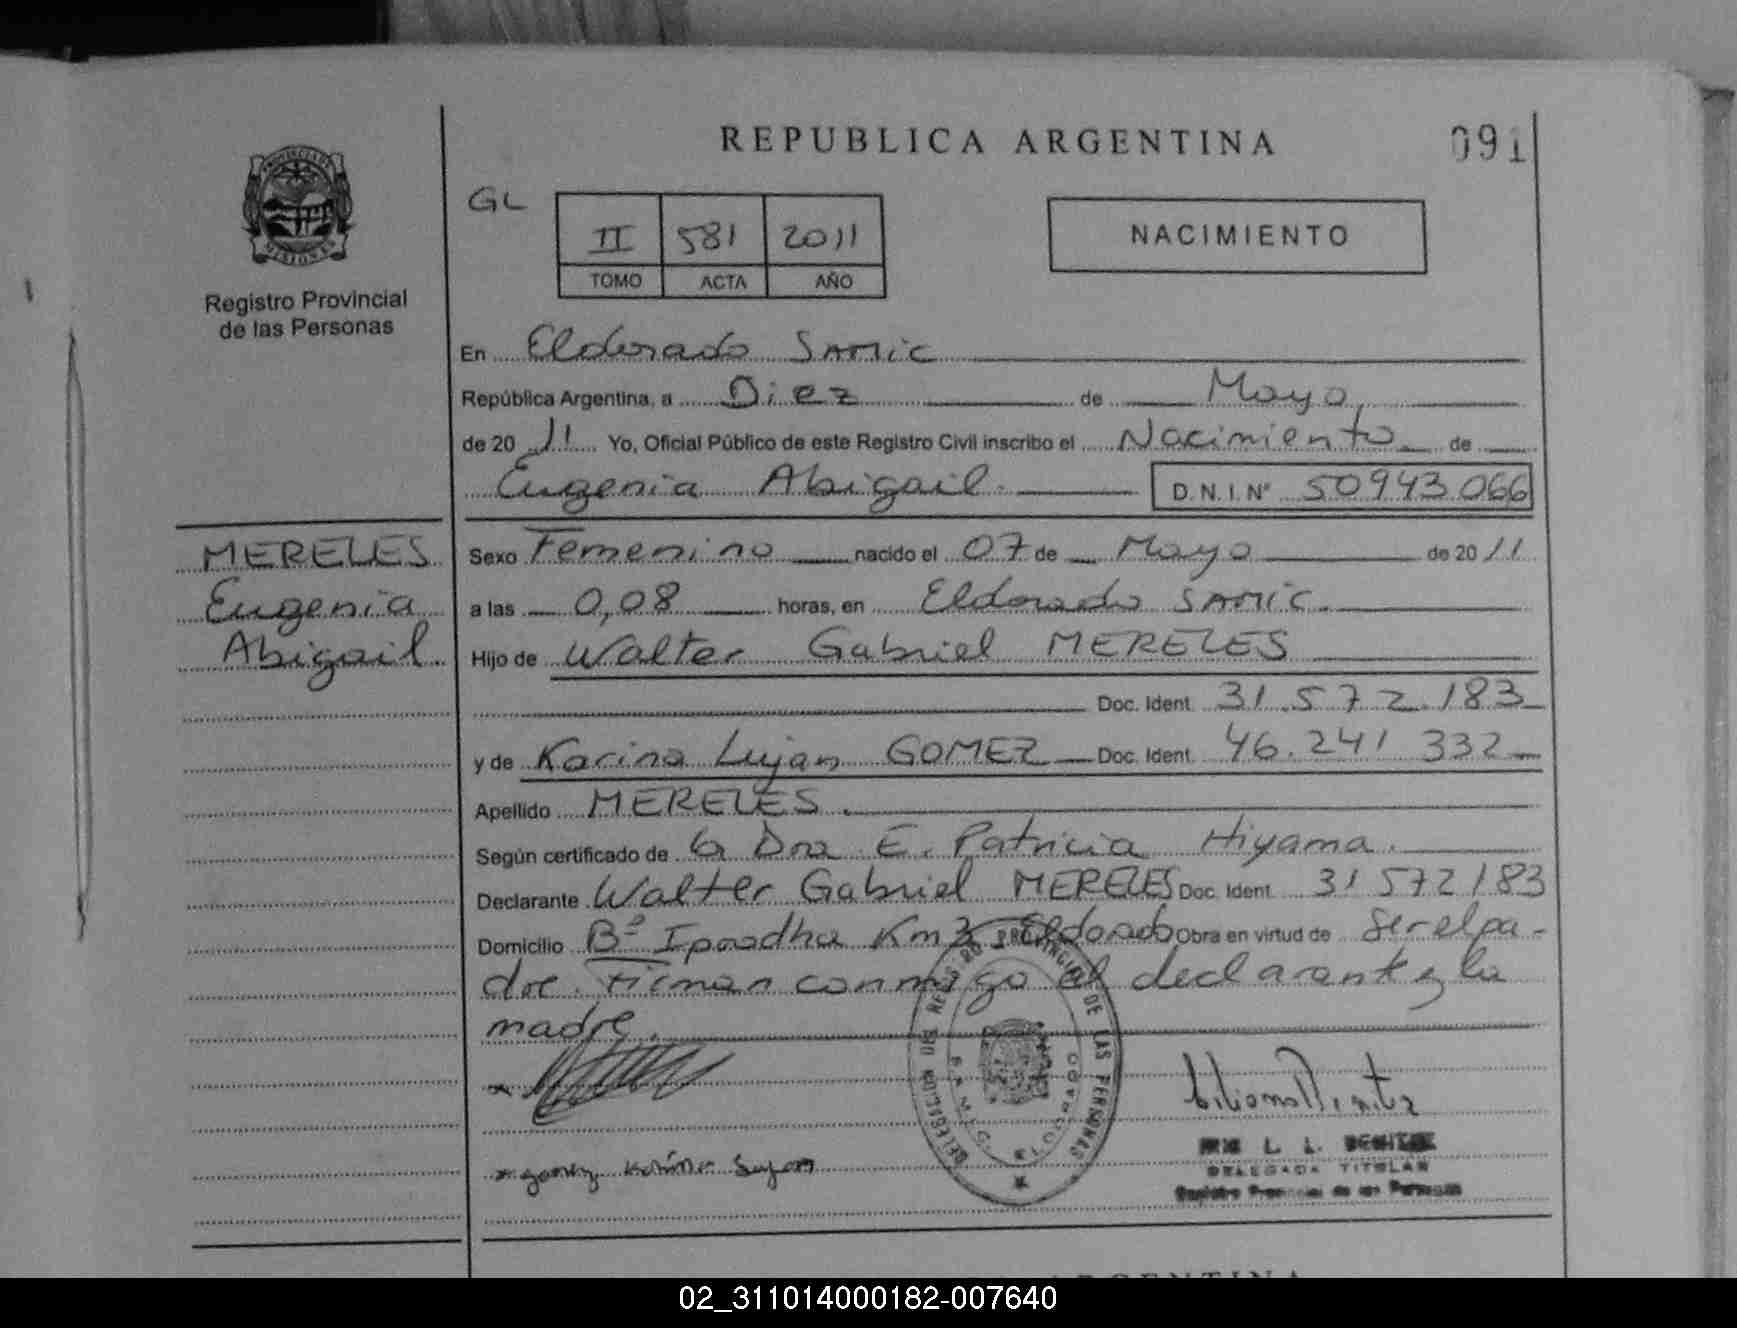 REPUBLICA ARGENTINA
091
GL
II 581 2011
TOMO ACTA AÑO
NACIMIENTO
PROVINCIA DE
MISIONES
Registro Provincial
de las Personas
En Eldorado SAMIC
República Argentina, a Diez de Mayo,
de 20 11 Yo, Oficial Público de este Registro Civil inscribo el Nacimiento de
Eugenia Abigail. D.N.I. Nº 50943066
MERELES
Eugenia
Abigail.
Sexo Femenino nacido el 07 de Mayo de 20 11
a las 0,08 horas, en Eldorado SAMIC.
Hijo de Walter Gabriel MERELES
Doc. Ident. 31.572.183
y de Karina Lujan GOMEZ Doc. Ident. 46.241 332
Apellido MERELES.
Según certificado de la Dra E. Patricia Hiyama.
Declarante Walter Gabriel MERELES Doc. Ident. 31 572 183
Domicilio Bº Km Eldorado Obra en virtud de Ser el pa-
dre. Firman conmigo el declarante y la
madre.
PROVINCIAL DE LAS PERSONAS
ELDORADO
DELEGADA TITULAR
Registro Provincial de las Personas
ARGENTINA
02_311014000182-007640